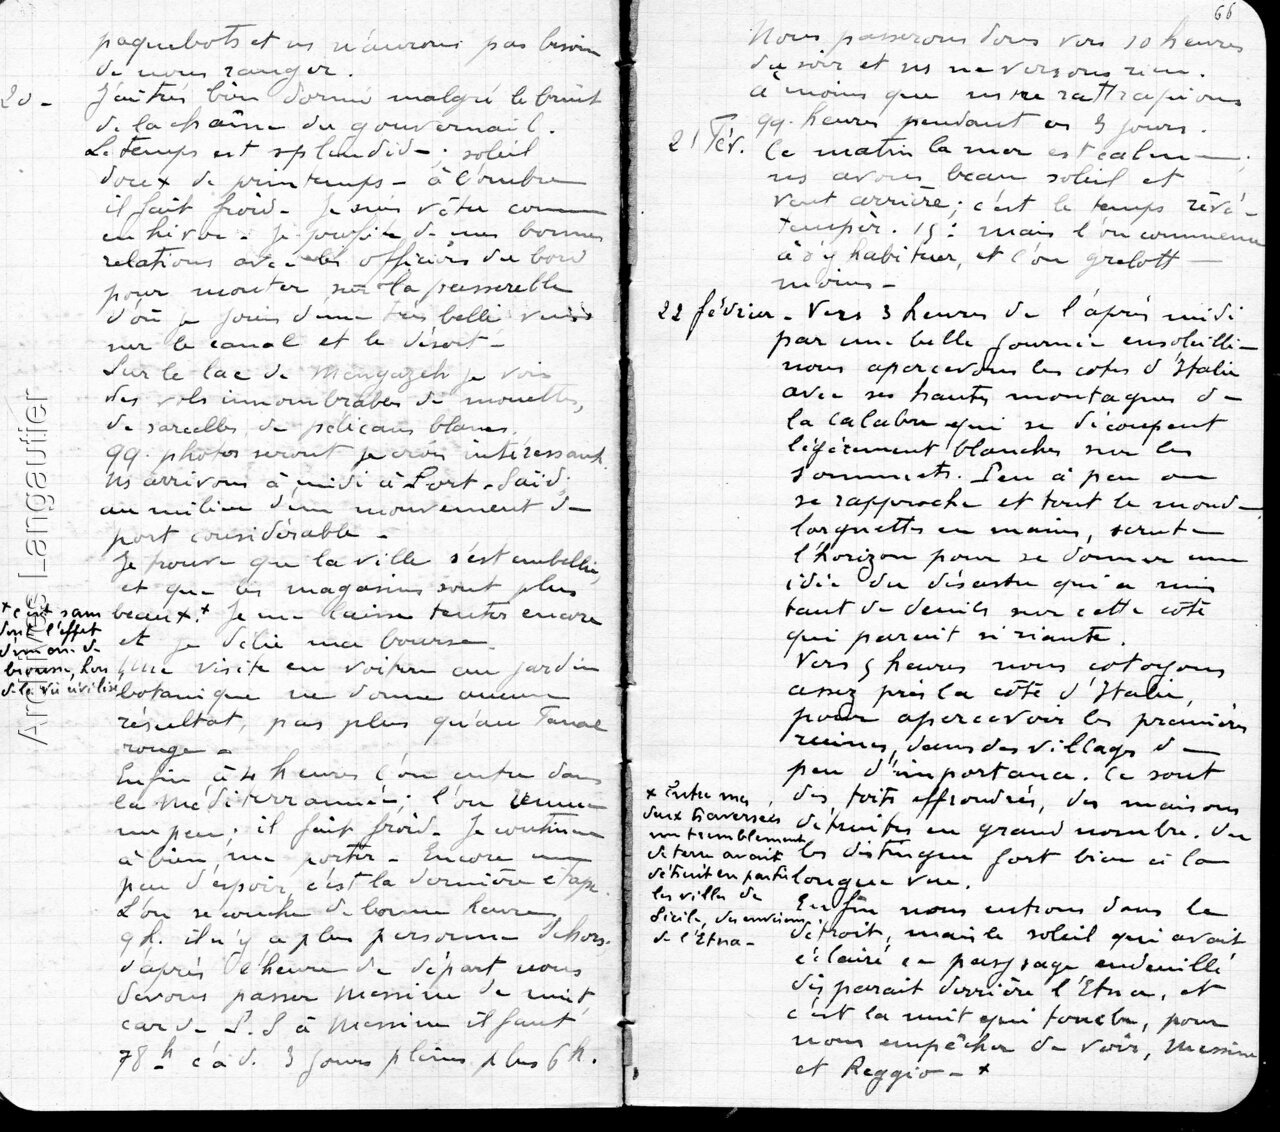 paquebots et ns n'aurons pas besoin
de nous ranger.
20 - J'ai très bien dormi malgré le bruit
de la chaîne du gouvernail.
Le temps est splendide ; soleil
doux de printemps - à l'ombre
il fait froid - Je suis vêtu comme
en hiver - Je profite de mes bonnes
relations avec les officiers du bord
pour monter sur la passerelle
d'où je jouis d'une très belle vue
sur le canal et le désert -
Sur le lac de Mengazeh je vois
des vols innombrables de mouettes,
de sarcelles, de pélicans blancs.
qq. photos seront je crois intéressant.
Ns arrivons à midi à Port-Saïd,
au milieu d'un mouvement de
port considérable -
Je trouve que la ville s'est embellie,
et que les magasins sont plus
beaux.* Je me laisse tenter encore
et je délie ma bourse
Une visite en voiture au jardin
botanique ne donne aucun
résultat, pas plus qu'au Fanal
rouge -
Enfin à 4 heures l'on entre dans
la Méditerrannée ; l'on remue
un peu ; il fait froid - Je continue
à bien me porter - Encore un
peu d'espoir, c'est la dernière étape.
L'on se couche de bonne heure,
9 h. il n'y a plus personne dehors.
d'après l'heure de départ nous
devons passer Messine de nuit,
car de P.S à Messine il faut
78 h c'à d. 3 jours pleins plus 6 h.
* c'est sans
doute l'effet
d'un an de
brousse, hors
de la vie civilisée
Archives Langautier
66
Nous passerons donc vers 10 heures
du soir et ns ne verrons rien.
à moins que ns ne rattrapions
qq. heures pendant ces 3 jours.
21 Fév. Ce matin la mer est calme ;
ns avons beau soleil et
vent arrière ; c'est le temps rêvé -
tempér. 15° mais l'on commence
à s'y habituer, et l'on grelotte
moins -
22 février - Vers 3 heures de l'après midi
par une belle journée ensoleillée
nous apercevons les cotes d'Italie
avec ses hautes montagnes de
la Calabre qui se découpent
légèrement blanches sur les
sommets. Peu à peu on
se rapproche et tout le monde
lorgnettes en mains, scrute
l'horizon pour se donner une
idée du désastre qui a mis
tant de deuils sur cette côte
qui parait si riante.
Vers 5 heures nous cotoyons
assez près la côte d'Italie,
pour apercevoir les premières
ruines, dans des villages de
peu d'importance. Ce sont
des toits effrondrés, des maisons
détruites en grand nombre. On
les distingue fort bien à la
longue vue.
Enfin nous entrons dans le
détroit, mais le soleil qui avait
éclairé ce paysage endeuillé
disparait derrière l'Etna, et
c'est la nuit qui tombe, pour
nous empêcher de voir, Messine
et Reggio - *
* Entre mes
deux traversées
un tremblement
de terre avait
détruit en partie
les villes de
Sicile, des environs
de l'Etna -